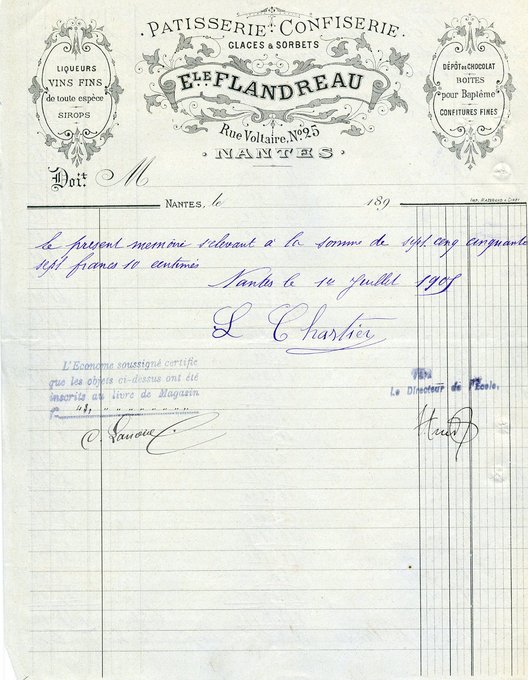 PATISSERIE-CONFISERIE
GLACES & SORBETS
ELE. FLANDREAU
Rue Voltaire, No. 25
NANTES
LIQUEURS
VINS FINS
de toute espèce
SIROPS
DÉPÔT DE CHOCOLAT
BOITES
pour Baptême
CONFITURES FINES
Doit M
NANTES, le 189
le present memoire s'elevant à la somme de sept cinquante
sept francs 10 centimes
Nantes le Juillet 1905
L Chartier
L'Econome soussigné certifie
que les objets ci-dessus ont été
inscrits au livre de Magasin
Vu
Le Directeur de l'École,